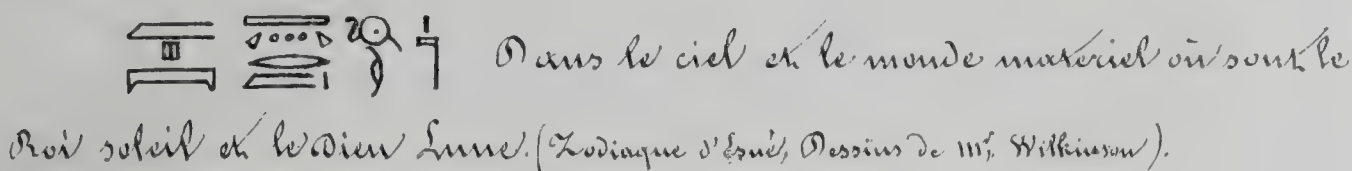 Dans le ciel et le monde matériel où sont le
Roi soleil et le Dieu Lune. (Zodiaque d'Esné, Dessins de Mr. Wilkinson).